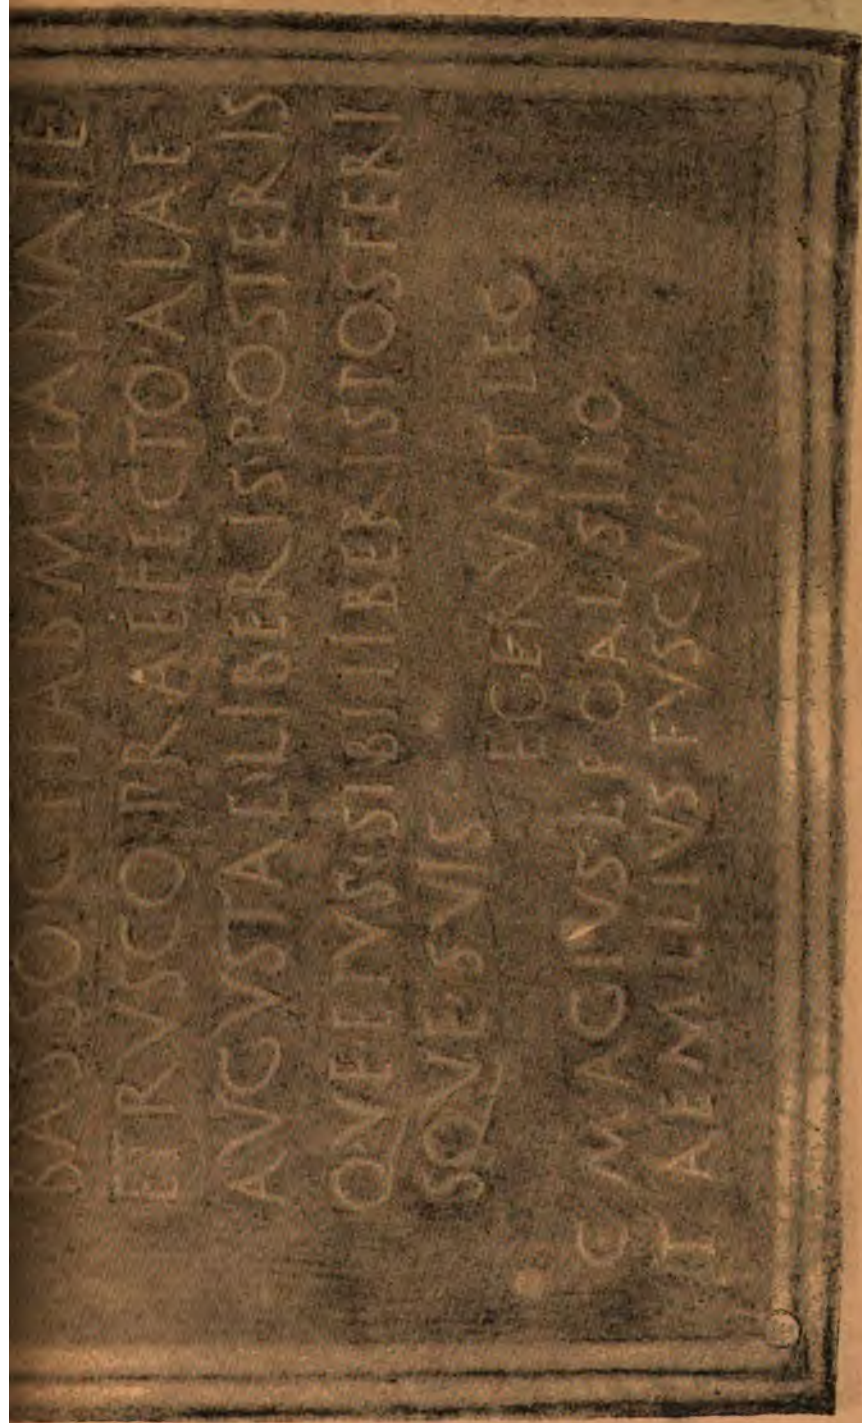 BASSO C F FAB MEFANATE
ETRVSCO PRAEFECTO ALAE
AVGVSTAE LIBERIS POSTERIS
QVE EIVS SIBI LIBERIS POSTERI
SQVE SVIS
EGERVNT LEG
C MAGIVS L F GAL SILO
T AEMILIVS FVSCVS